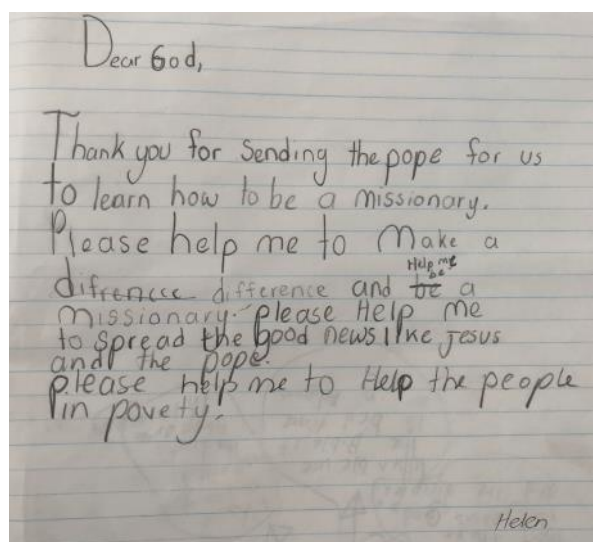 Dear God,
Thank you for Sending the pope for us
to learn how to be a missionary.
Please help me to Make a
Help me
be
difrencce difference and be a
missionary. please Help me
to spread the good news like jesus
and the pope.
please help me to Help the people
in povety.
Helen